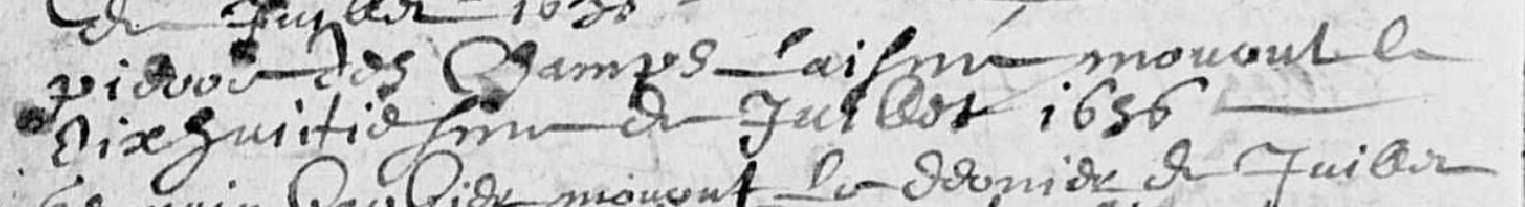 de Juillet 1636
pierre des Champs laisné mourut le
dixhuitiesme de Juillet 1636
mourut le dernier de Juillet